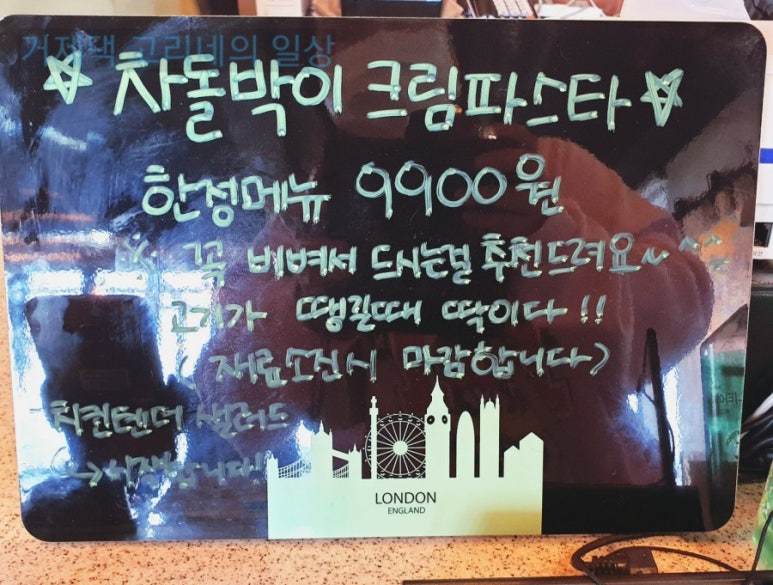 거제댁 고리네의 일상
☆ 차돌박이 크림파스타 ☆
한정메뉴 9900원
※ 꼭 비벼서 드시는걸 추천드려요~ ^^
고기가 땡길때 딱이다!!
(재료소진시 마감합니다)
치킨텐더 샐러드
→시작합니다!
LONDON
ENGLAND